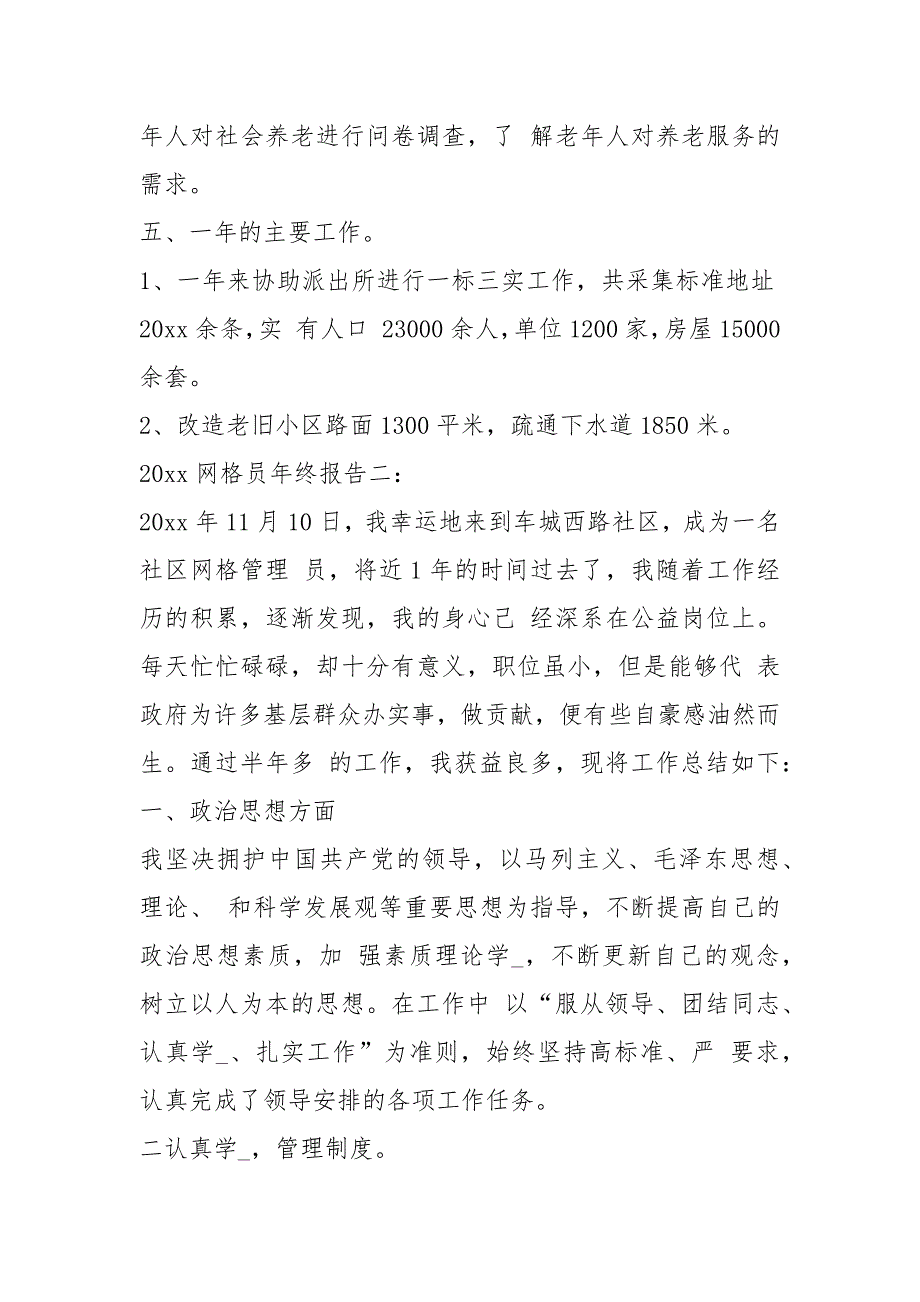 年人对社会养老进行问卷调查，了 解老年人对养老服务的
需求。
五、一年的主要工作。
1、一年来协助派出所进行一标三实工作，共采集标准地址
20xx 余条，实 有人口 23000 余人，单位 1200 家，房屋 15000
余套。
2、改造老旧小区路面 1300 平米，疏通下水道 1850 米。
20xx 网格员年终报告二：
20xx 年 11 月 10 日，我幸运地来到车城西路社区，成为一名
社区网格管理 员，将近 1 年的时间过去了，我随着工作经
历的积累，逐渐发现，我的身心己 经深系在公益岗位上。
每天忙忙碌碌，却十分有意义，职位虽小，但是能够代 表
政府为许多基层群众办实事，做贡献，便有些自豪感油然而
生。通过半年多 的工作，我获益良多，现将工作总结如下：
一、政治思想方面
我坚决拥护中国共产党的领导，以马列主义、毛泽东思想、
理论、 和科学发展观等重要思想为指导，不断提高自己的
政治思想素质，加 强素质理论学_，不断更新自己的观念，
树立以人为本的思想。在工作中 以“服从领导、团结同志、
认真学_、扎实工作”为准则，始终坚持高标准、严 要求，
认真完成了领导安排的各项工作任务。
二认真学_，管理制度。